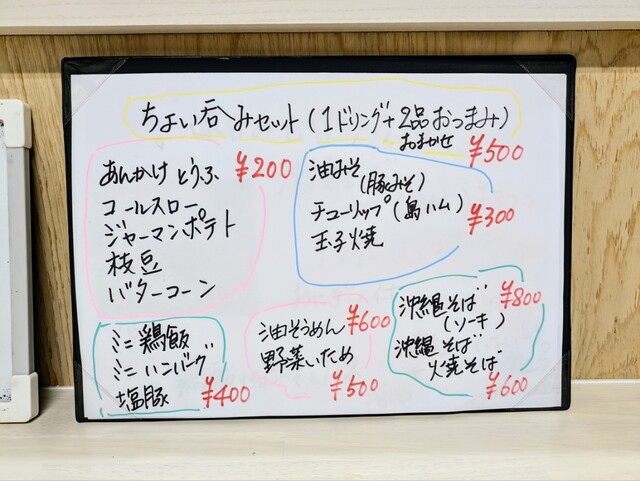 ちょい呑みセット(1ドリング+2品おつまみ)
おまかせ ¥500
あんかけとうふ ¥200
コールスロー
ジャーマンポテト
枝豆
バターコーン
油みそ
(豚みそ)
チューリップ(島ハム) ¥300
玉子焼
ミニ鶏飯
ミニハンバーグ
塩豚 ¥400
油そうめん ¥600
野菜いため
¥500
沖縄そば ¥800
(ソーキ)
沖縄そば
焼そば
¥600